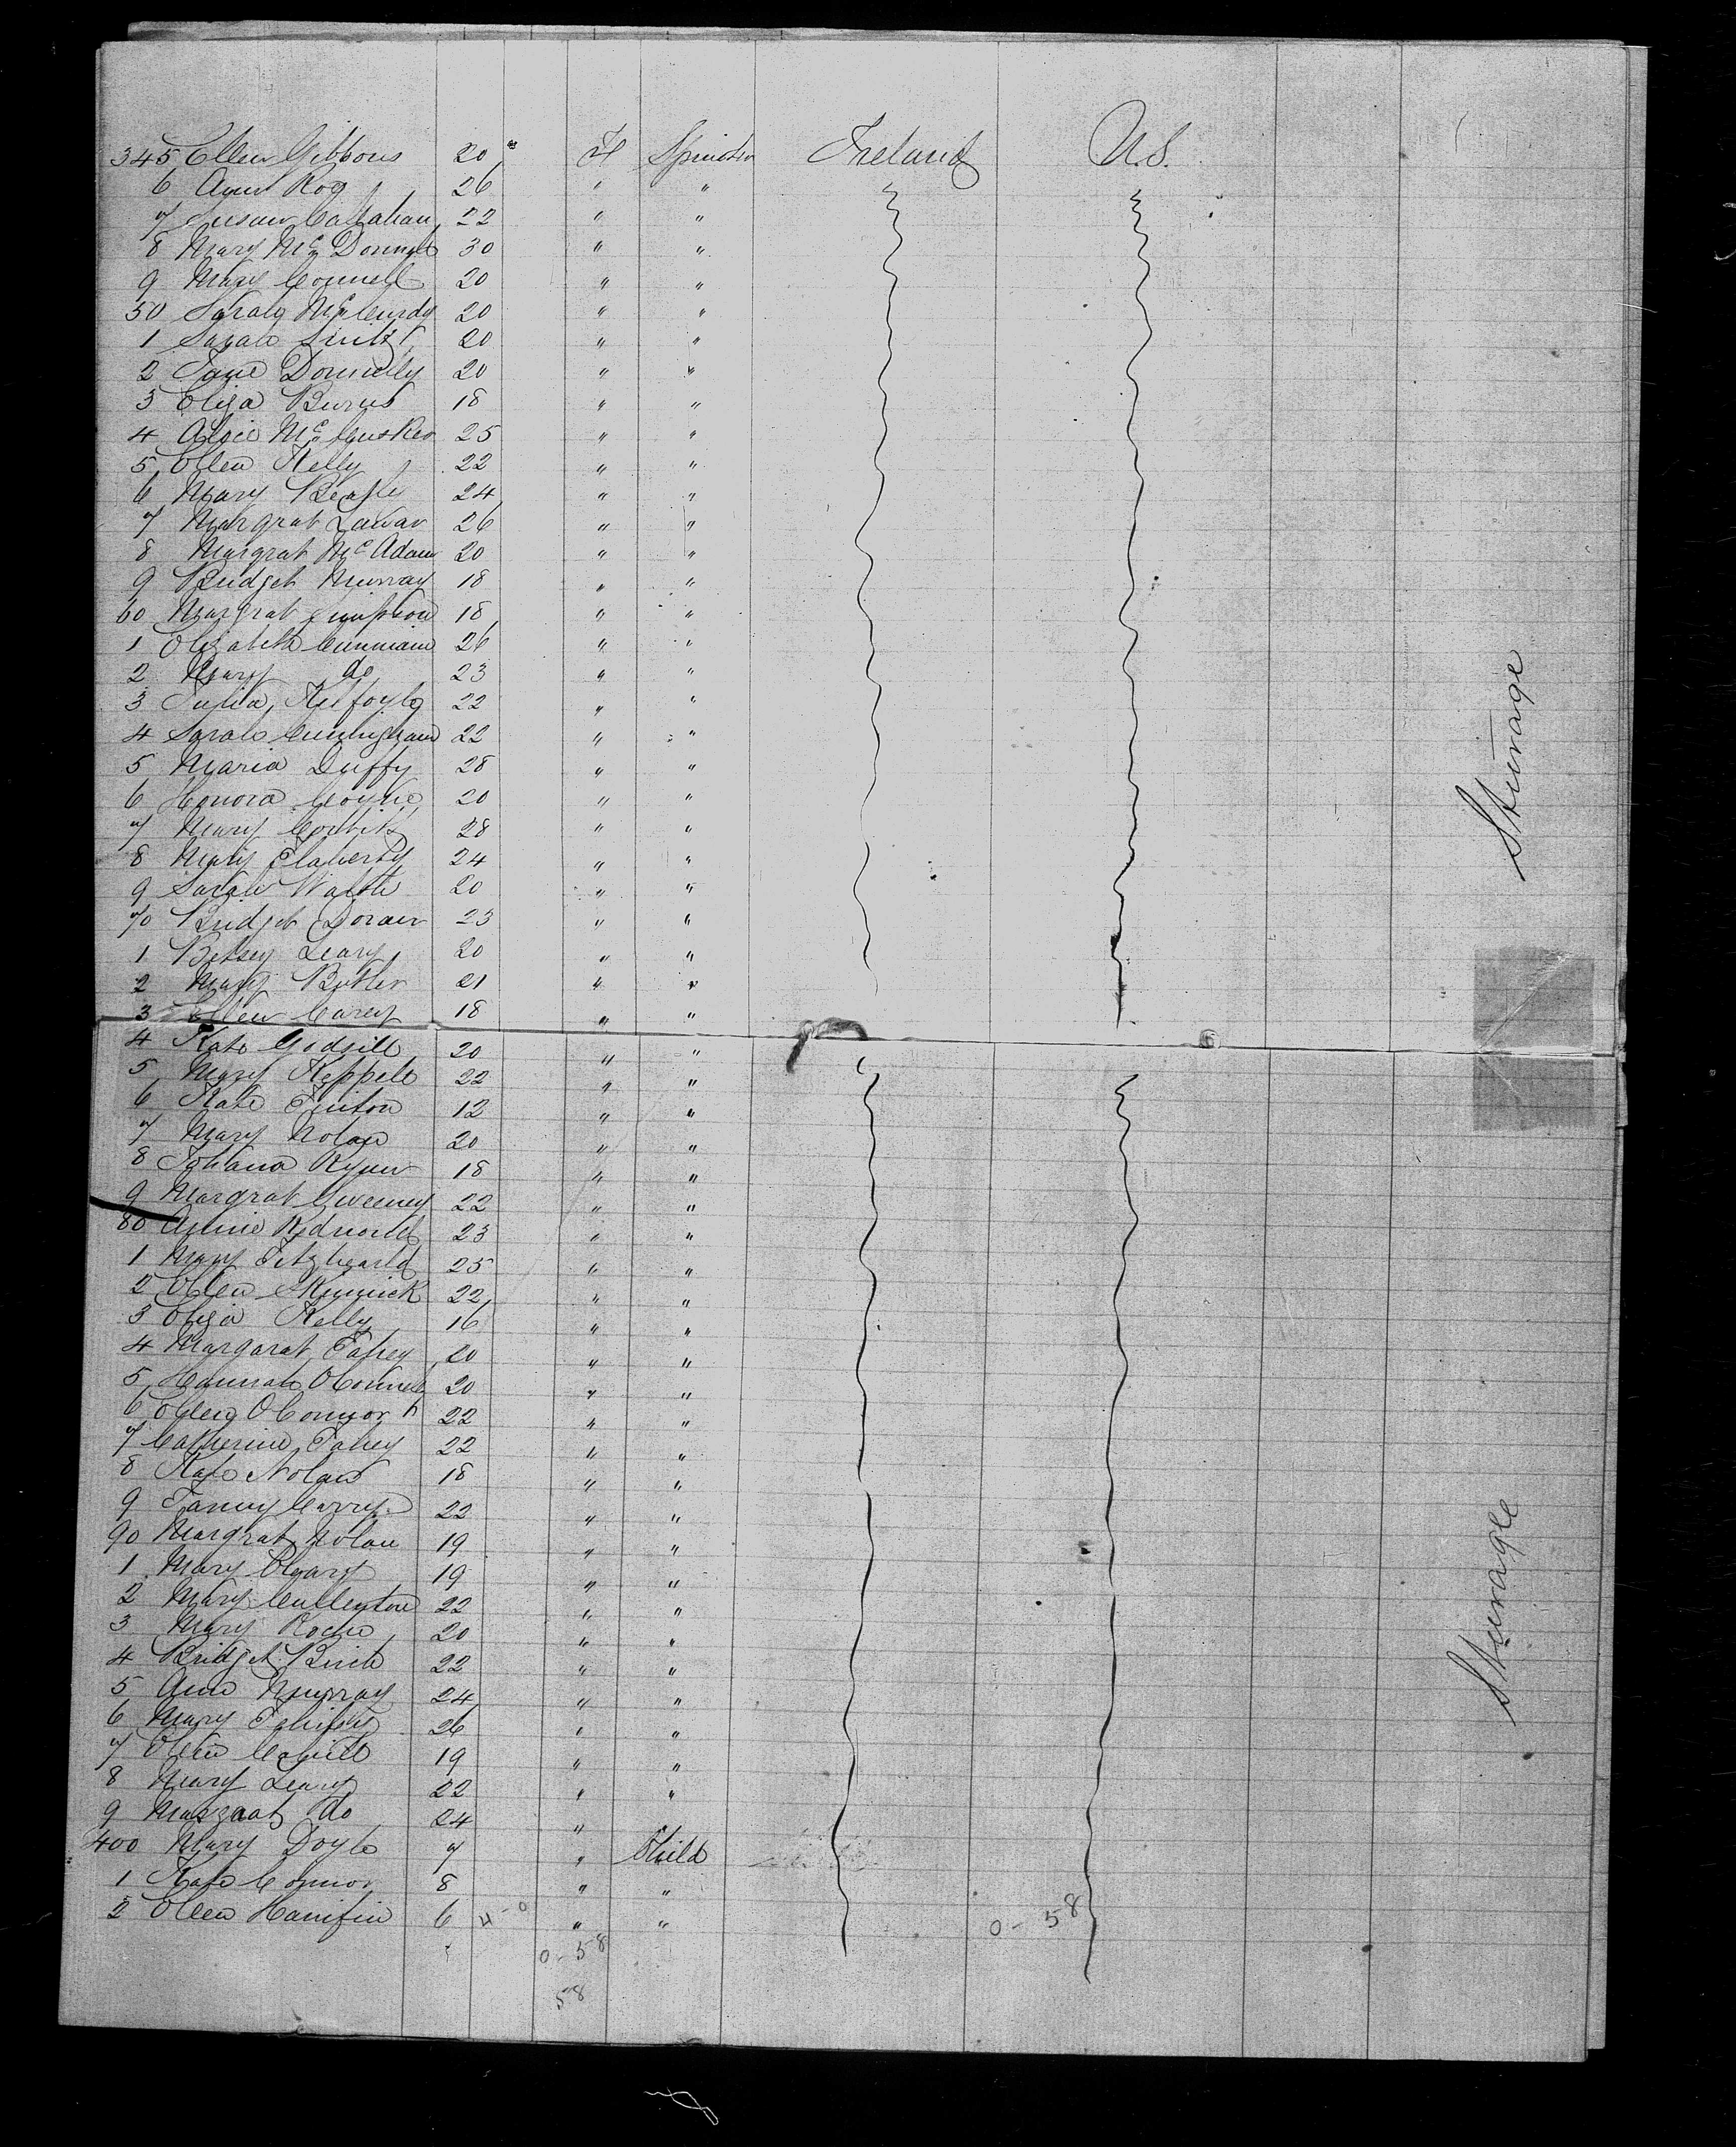 345 Ellen Gibbons 20 F Spinster Ireland U.S.
6 Ann Roy 26 " "
7 Susan Callahan 22 " "
8 Mary McDonnell 30 " "
9 Mary Connell 20 " "
50 Sarah McCurdy 20 " "
1 Sarah 20 " "
2 Jane Donnelly 20 " "
3 Eliza Burns 18 " "
4 Alice McCusker 25 " "
5 Ellen Kelly 22 " "
6 Mary 24 " "
7 Margrat 26 " "
8 Margrat McAdam 20 " "
9 Bridget Murray 18 " "
60 Margrat Simpson 18 " "
1 Elizabeth 26 " "
2 Mary do 23 " "
3 Julia 22 " "
4 Sarah Cunningham 22 " "
5 Maria Duffy 28 " "
6 Honora Coyne 20 " "
7 Mary 28 " "
8 Mary Flaherty 24 " "
9 Sarah Walsh 20 " "
70 Bridget Doran 23 " "
1 Betsey Leary 20 " "
2 Mary Butler 21 " "
3 Ellen Carey 18 " "
4 Kate Godsill 20 " "
5 Mary Keppell 22 " "
6 Kate Finton 12 " "
7 Mary Nolan 20 " "
8 Johana Ryan 18 " "
9 Margrat Sweeney 22 " "
80 Annie Redmond 23 " "
1 Mary Fitzgearld 25 " "
2 Ellen 22 " "
3 Eliza Kelly 16 " "
4 Margarat Fahey 20 " "
5 Hannah OConnell 20 " "
6 Ellen OConnor 22 " "
7 Catherine Fahey 22 " "
8 Kate Nolan 18 " "
9 Fanny Carry 22 " "
90 Margrat Nolan 19 " "
1 Mary 19 " "
2 Mary Cullenton 22 " "
3 Mary Roche 20 " "
4 Bridget 22 " "
5 Ann Murray 24 " "
6 Mary 26 " "
7 Ellen 19 " "
8 Mary Leary 22 " "
9 Margrat do 24 "
400 Mary Doyle 7 " Child
1 Kate Connor 8 " "
2 Ellen Hanifin 6 4-0 " " 0-58
0-58
58
Sturage
Sturagle